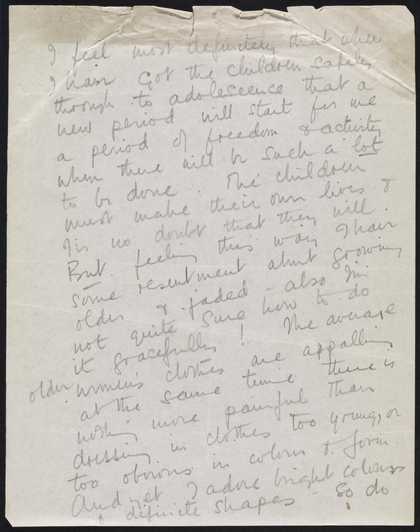 I feel most definitely that when
I have got the children safely
through to adolescence that a
new period will start for me
a period of freedom & activity
when there will be such a lot
to be done. The children
must make their own lives &
I've no doubt that they will.
But feeling this way I have
some resentment about growing
older & jaded - also I'm
not quite sure how to do
it gracefully! The average
older women's clothes are appalling
at the same time there is
nothing more painful than
dressing in clothes too young, or
too obvious in colour & form
And yet I adore bright colours
& definite shapes - so do